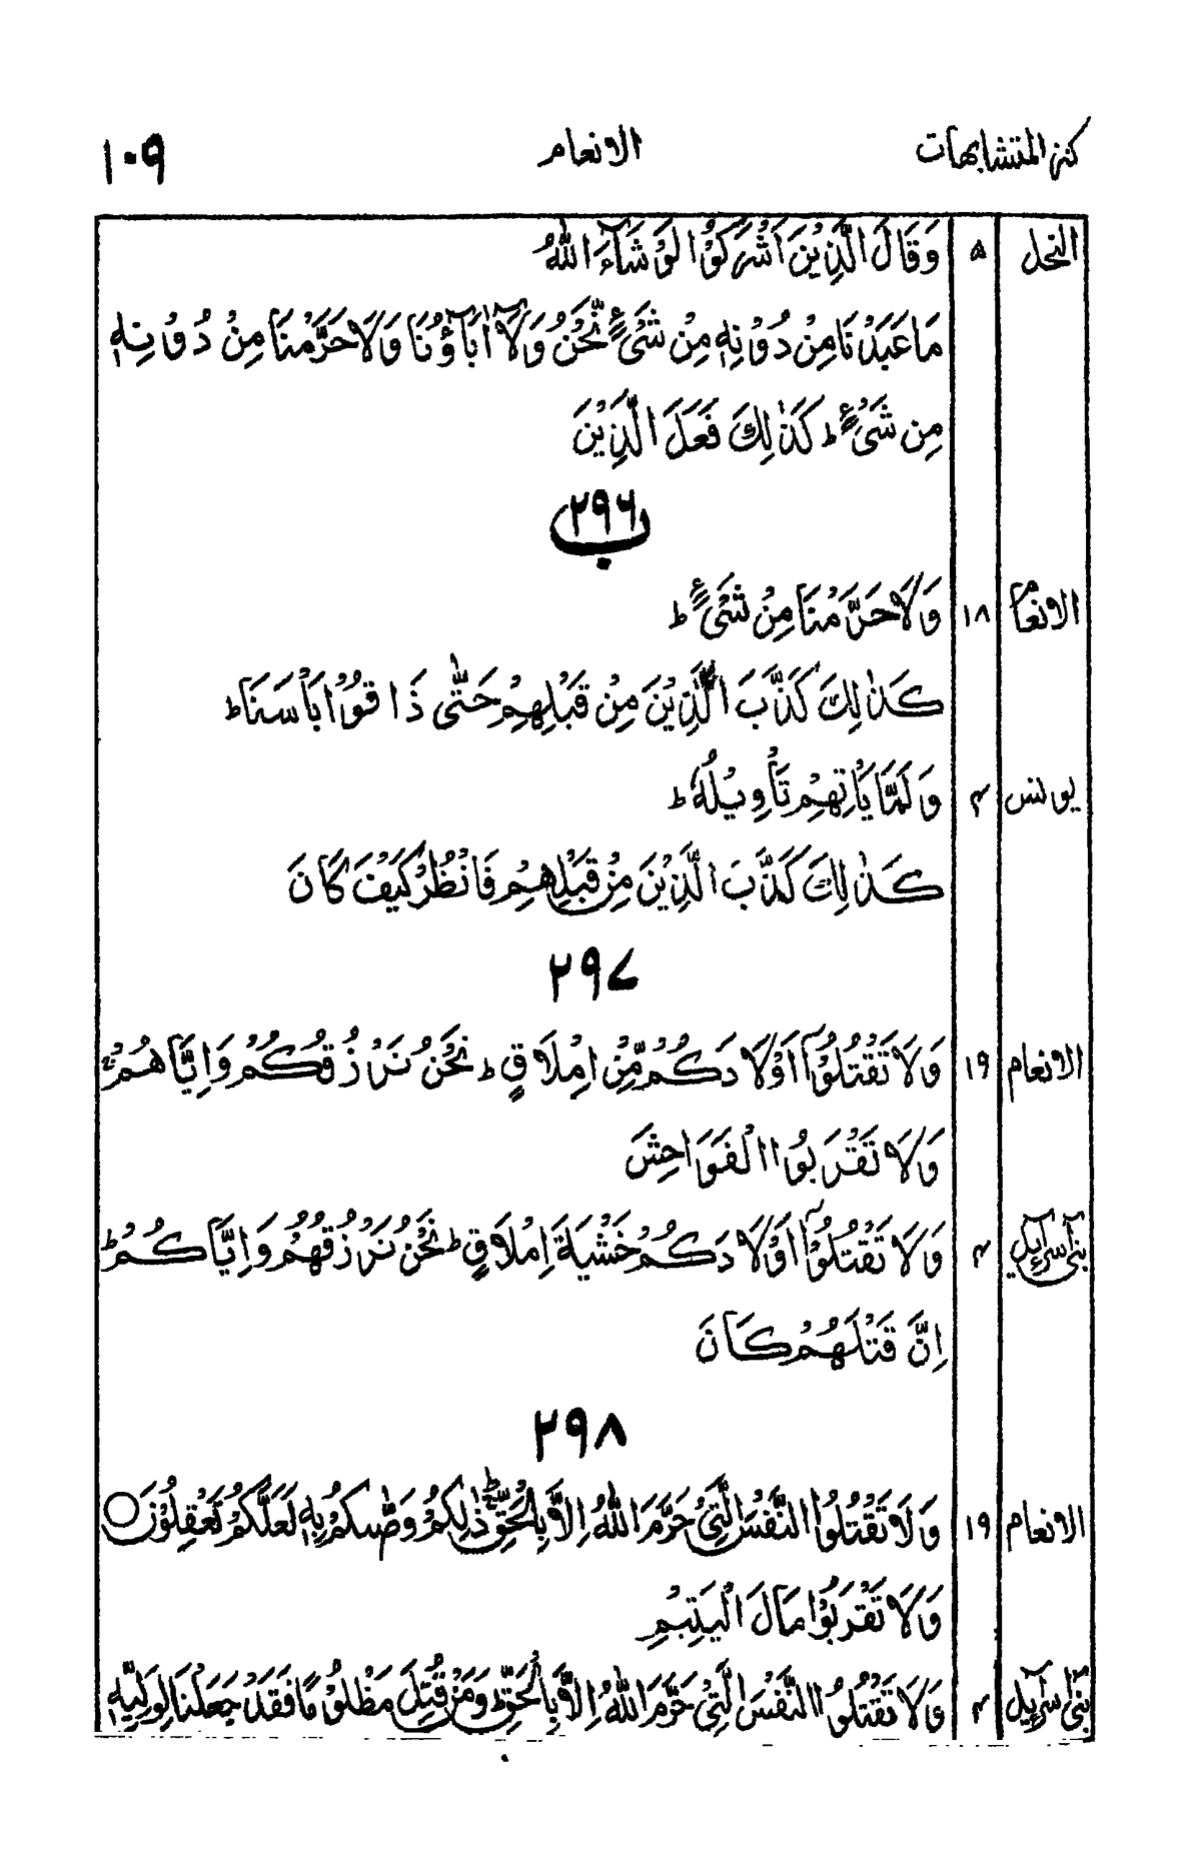 كنز المتشابهات الانعام ١٠٩
النحل ٥ وَقَالَ الَّذِيْنَ اَشْرَكُوْا لَوْ شَآءَ اللّٰهُ
مَا عَبَدْنَا مِنْ دُوْنِهٖ مِنْ شَیْءٍ نَّحْنُ وَلَآ اٰبَآؤُنَا وَلَا حَرَّمْنَا مِنْ دُوْنِهٖ
مِن شَیْءٍ ؕ كَذٰلِكَ فَعَلَ الَّذِيْنَ
٢٩٦
الانعام ١٨ وَلَا حَرَّمْنَا مِنْ شَیْءٍ ؕ
كَذٰلِكَ كَذَّبَ الَّذِيْنَ مِنْ قَبْلِهِمْ حَتّٰى ذَاقُوْا بَاْسَنَا ؕ
يونس ۴ وَلَمَّا يَاْتِهِمْ تَاْوِيْلُهٗ ؕ
كَذٰلِكَ كَذَّبَ الَّذِيْنَ مِنْ قَبْلِهِمْ فَانْظُرْ كَيْفَ كَانَ
٢٩٧
الانعام ١٩ وَلَا تَقْتُلُوْٓا اَوْلَادَكُمْ مِّنْ اِمْلَاقٍ ؕ نَحْنُ نَرْزُقُكُمْ وَاِيَّاهُمْ ۚ
وَلَا تَقْرَبُوا الْفَوَاحِشَ
بنی اسرآءیل ۴ وَلَا تَقْتُلُوْٓا اَوْلَادَكُمْ خَشْيَةَ اِمْلَاقٍ ؕ نَحْنُ نَرْزُقُهُمْ وَاِيَّاكُمْ ؕ
اِنَّ قَتْلَهُمْ كَانَ
٢٩٨
الانعام ١٩ وَلَا تَقْتُلُوا النَّفْسَ الَّتِیْ حَرَّمَ اللّٰهُ اِلَّا بِالْحَقِّ ؕ ذٰلِكُمْ وَصّٰىكُمْ بِهٖ لَعَلَّكُمْ تَعْقِلُوْنَ ○
وَلَا تَقْرَبُوْا مَالَ الْيَتِيْمِ
بنی اسرآءیل ۴ وَلَا تَقْتُلُوا النَّفْسَ الَّتِیْ حَرَّمَ اللّٰهُ اِلَّا بِالْحَقِّ ؕ وَمَنْ قُتِلَ مَظْلُوْمًا فَقَدْ جَعَلْنَا لِوَلِيِّهٖ